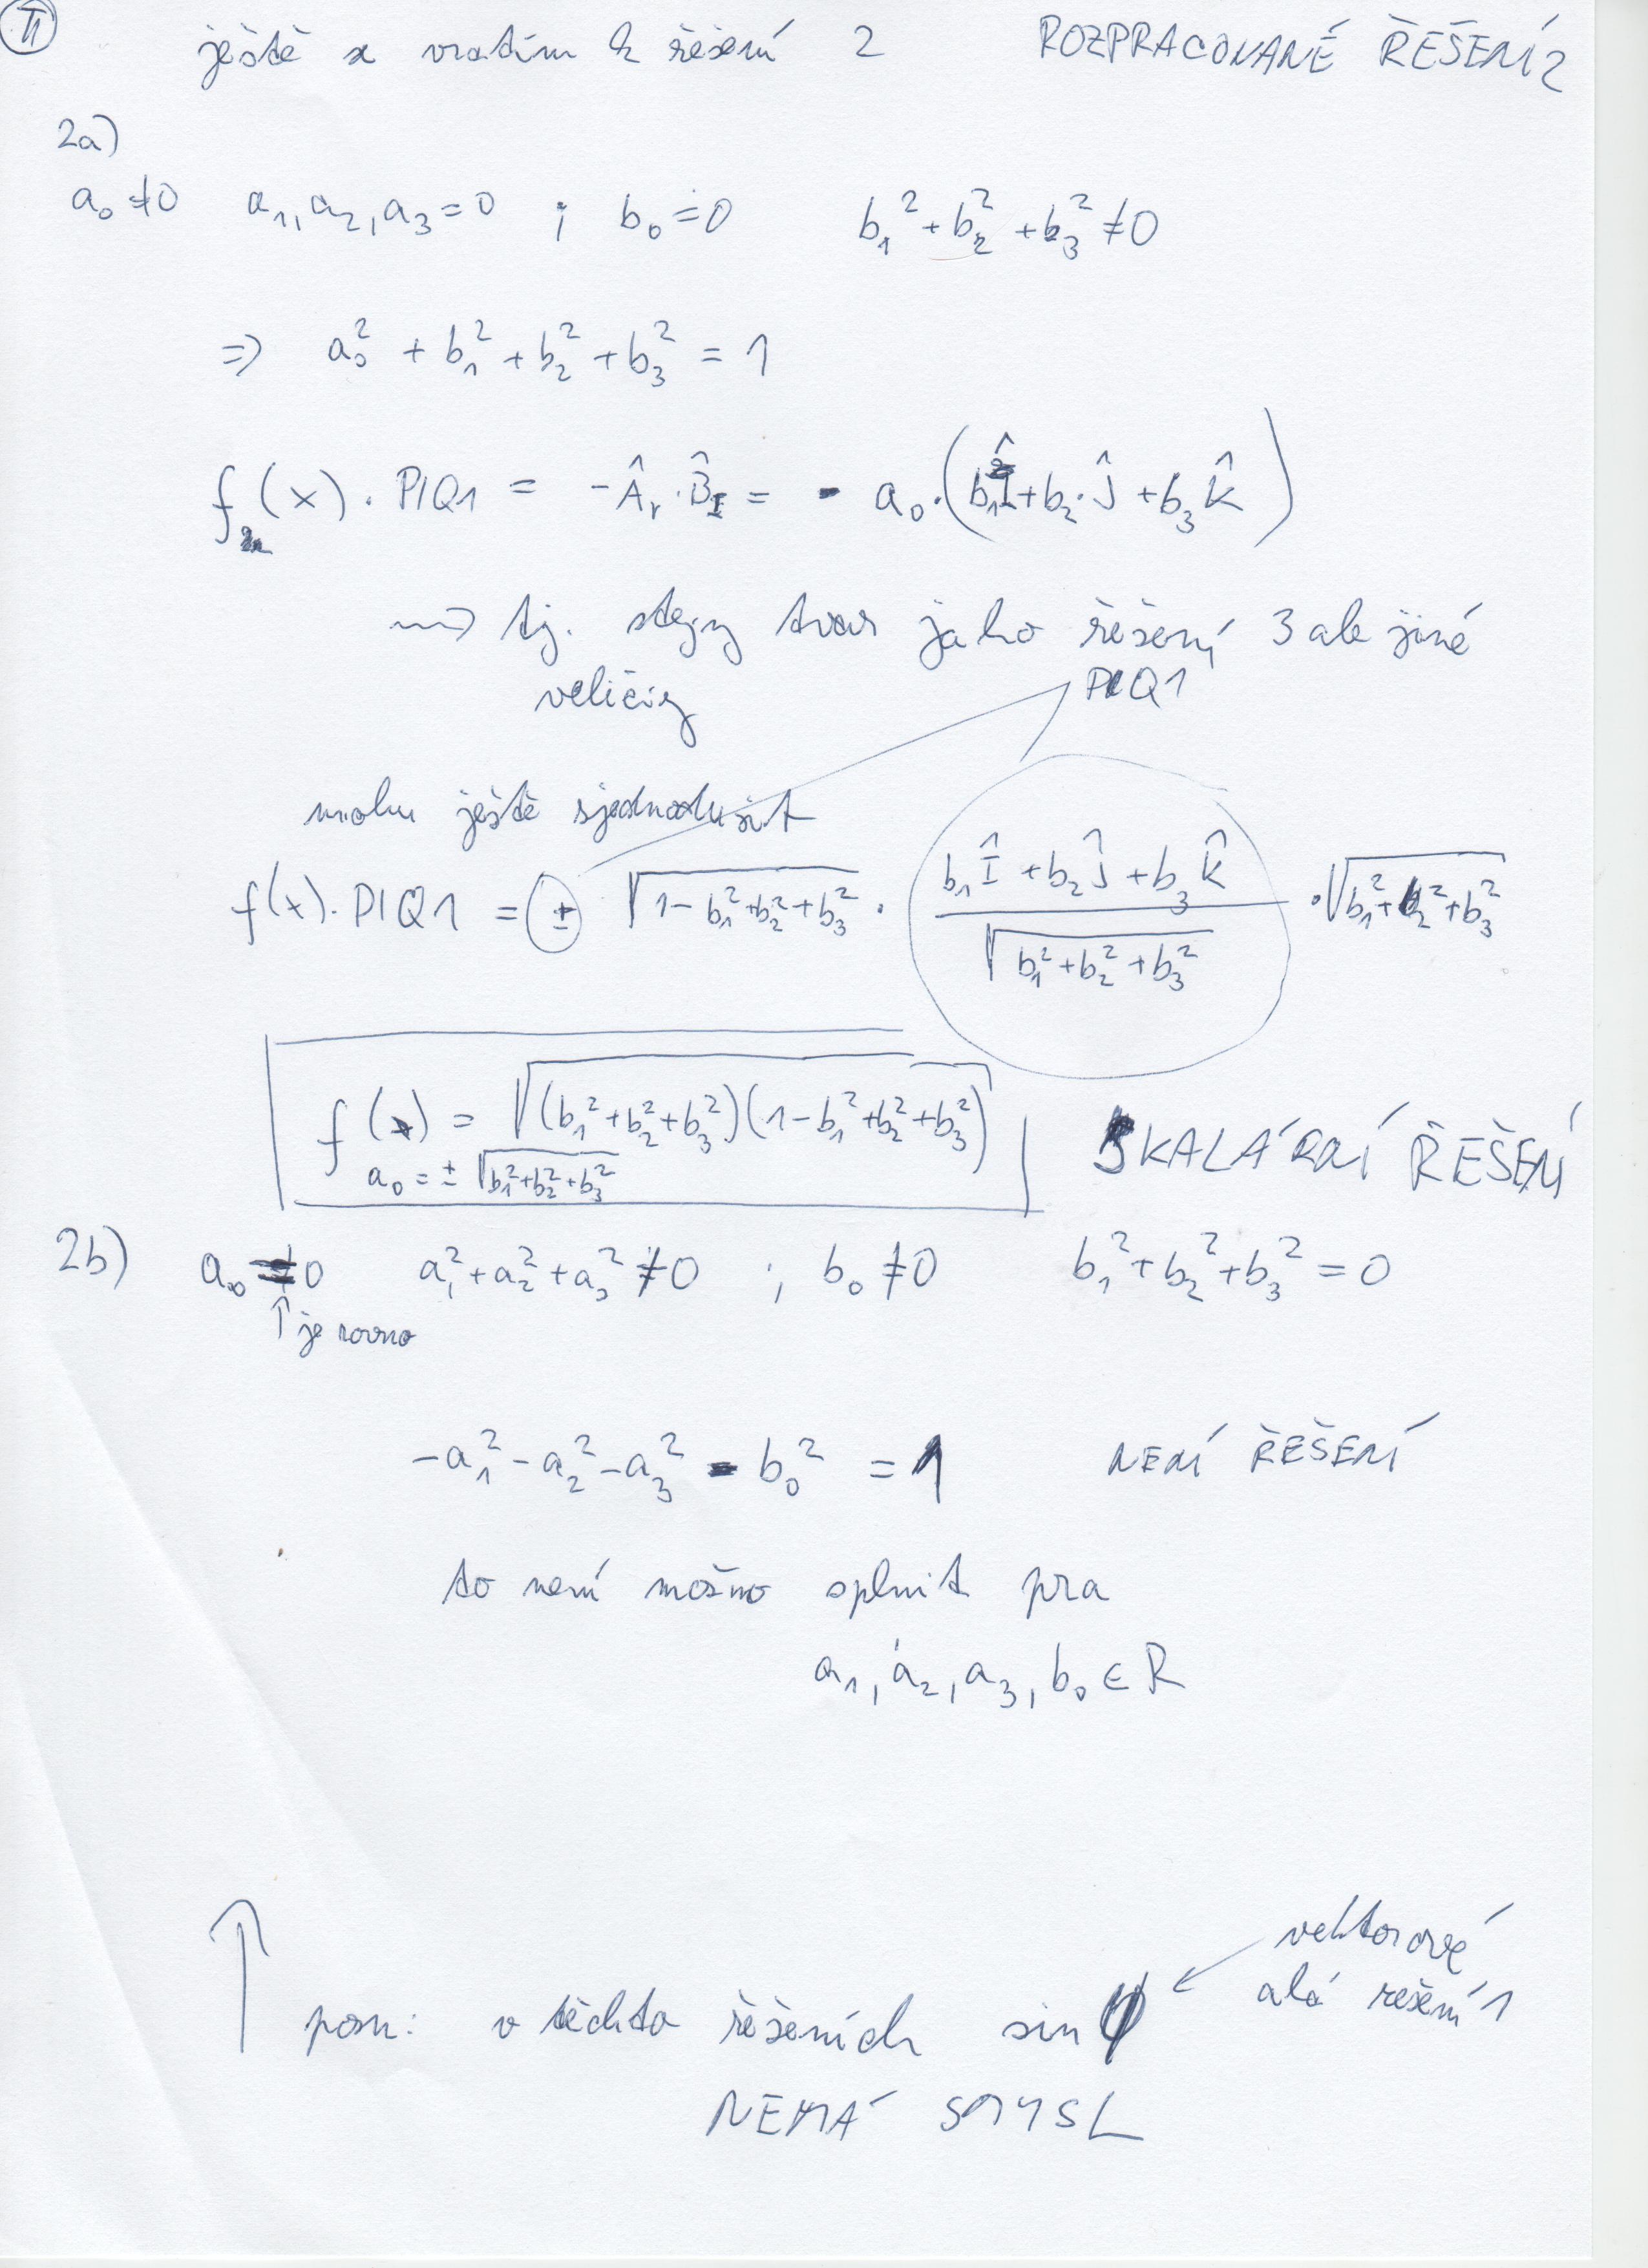 II
ještě se vrátím k řešení 2 ROZPRACOVANÉ ŘEŠENÍ 2
2a)
a₀ ≠ 0 a₁, a₂, a₃ = 0 ; b₀ = 0 b₁² + b₂² + b₃² ≠ 0
=> a₀² + b₁² + b₂² + b₃² = 1
f(x) . PIQ1 = - Âᵣ . B̂_I = - a₀ . (b₁Î + b₂ . Ĵ + b₃ K̂)
~> tj. stejný tvar jako řešení 3 ale jiné
veličiny
PIQ1
mohu ještě zjednodušit
f(x) . PIQ1 = ± √(1 - b₁² + b₂² + b₃²) . (b₁ Î + b₂ Ĵ + b₃ K̂) / √(b₁² + b₂² + b₃²) . √(b₁² + b₂² + b₃²)
f(x) = √((b₁² + b₂² + b₃²)(1 - b₁² + b₂² + b₃²)) SKALÁRNÍ ŘEŠENÍ
a₀ = ± √(b₁² + b₂² + b₃²)
2b) a₀ = 0 a₁² + a₂² + a₃² ≠ 0 ; b₀ ≠ 0 b₁² + b₂² + b₃² = 0
↑ je rovno
- a₁² - a₂² - a₃² - b₀² = 1 NENÍ ŘEŠENÍ
to není možno splnit pro
a₁, a₂, a₃, b₀ ∈ R
↑
vektorové
alá řešení 1
pozn: v těchto řešeních sin φ
NEMÁ SMYSL